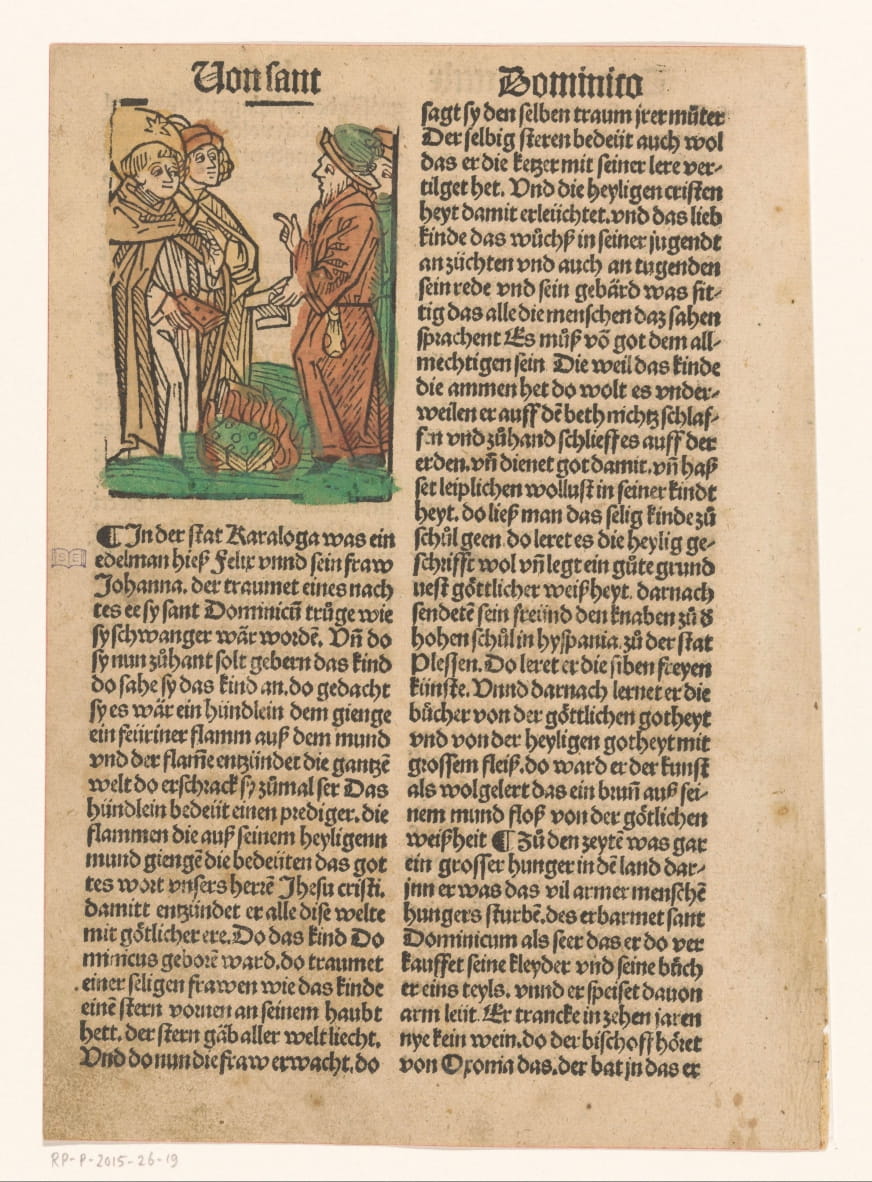 Von sant Dominico
¶ In der stat Karaloga was ein
edelman hieß Felix vnnd sein fraw
Johanna. der traumet eines nach
tes ee sy sant Dominicū trůge wie
sy schwanger wär wordē. Vn̄ do
sy nun zůhant solt gebern das kind
do sahe sy das kind an. do gedacht
sy es wär ein hündlein dem gienge
ein feüriner flamm auß dem mund
vnd der flam̄e entzündet die gantzē
welt do erschrack sy zůmal ser Das
hündlein bedeüt einen prediger. die
flammen die auß seinem heyligenn
mund giengē die bedeüten das got
tes wort vnsers herrē Jhesu cristi.
damitt entzündet er alle dise welte
mit götlicher ere. Do das kind Do
minicus geborē ward. do traumet
einer seligen frawen wie das kinde
einē stern vornen an seinem haubt
hett. der stern gäb aller welt liecht.
Vnd do nun die fraw erwacht. do
sagt sy den selben traum jrer můter
Der selbig steren bedeüt auch wol
das er die ketzer mit seiner lere ver⸗
tilget het. Vnd die heyligen cristen
heyt damit erleüchtet. vnd das lieb
kinde das wůchß in seiner jugendt
an züchten vnd auch an tugenden
sein rede vnd sein gebärd was sit⸗
tig das alle die menschen daz sahen
sprachent Es můß vō got dem all⸗
mechtigen sein Die weil das kinde
die ammen het do wolt es vnder⸗
weilen er auff dē beth nichtz schlaf⸗
fen vnd zůhand schlieff es auff der
erden. vn̄ dienet got damit. vn̄ haß
set leiplichen wollust in seiner kindt
heyt. do ließ man das selig kinde zů
schůl geen do leret es die heylig ge⸗
schrifft wol vn̄ legt ein gůte grund
uest göttlicher weißheyt. darnach
sendetē sein freünd den knaben zů d
hohen schůl in hyspania. zů der stat
Plessen. Do leret er die siben freyen
künste. Vnnd darnach lernet er die
bůcher von der göttlichen gotheyt
vnd von der heyligen gotheyt mit
grossem fleiß. do ward er der kunst
als wolgelert das ein brun̄ auß sei⸗
nem mund floß von der götlichen
weißheit ¶ Zů den zeytē was gar
ein grosser hunger in dē land dar⸗
jnn er was das vil armer menschē
hungers sturbē. des erbarmet sant
Dominicum als seer das er do ver
kauffet seine kleyder vnd seine bůch
er eins teyls. vnnd er speiset dauon
arm leüt. Er trancke in zehen jaren
nye kein wein. do der bischoff höret
von Oxonia das. der bat jn das er
RP-P-2015-26-19